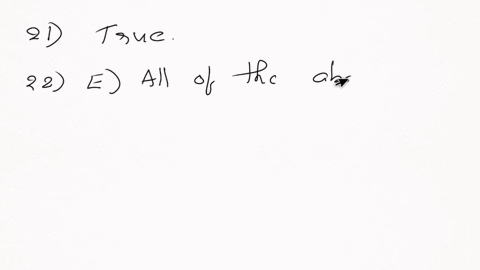 21) True.
22) E) All of the ab